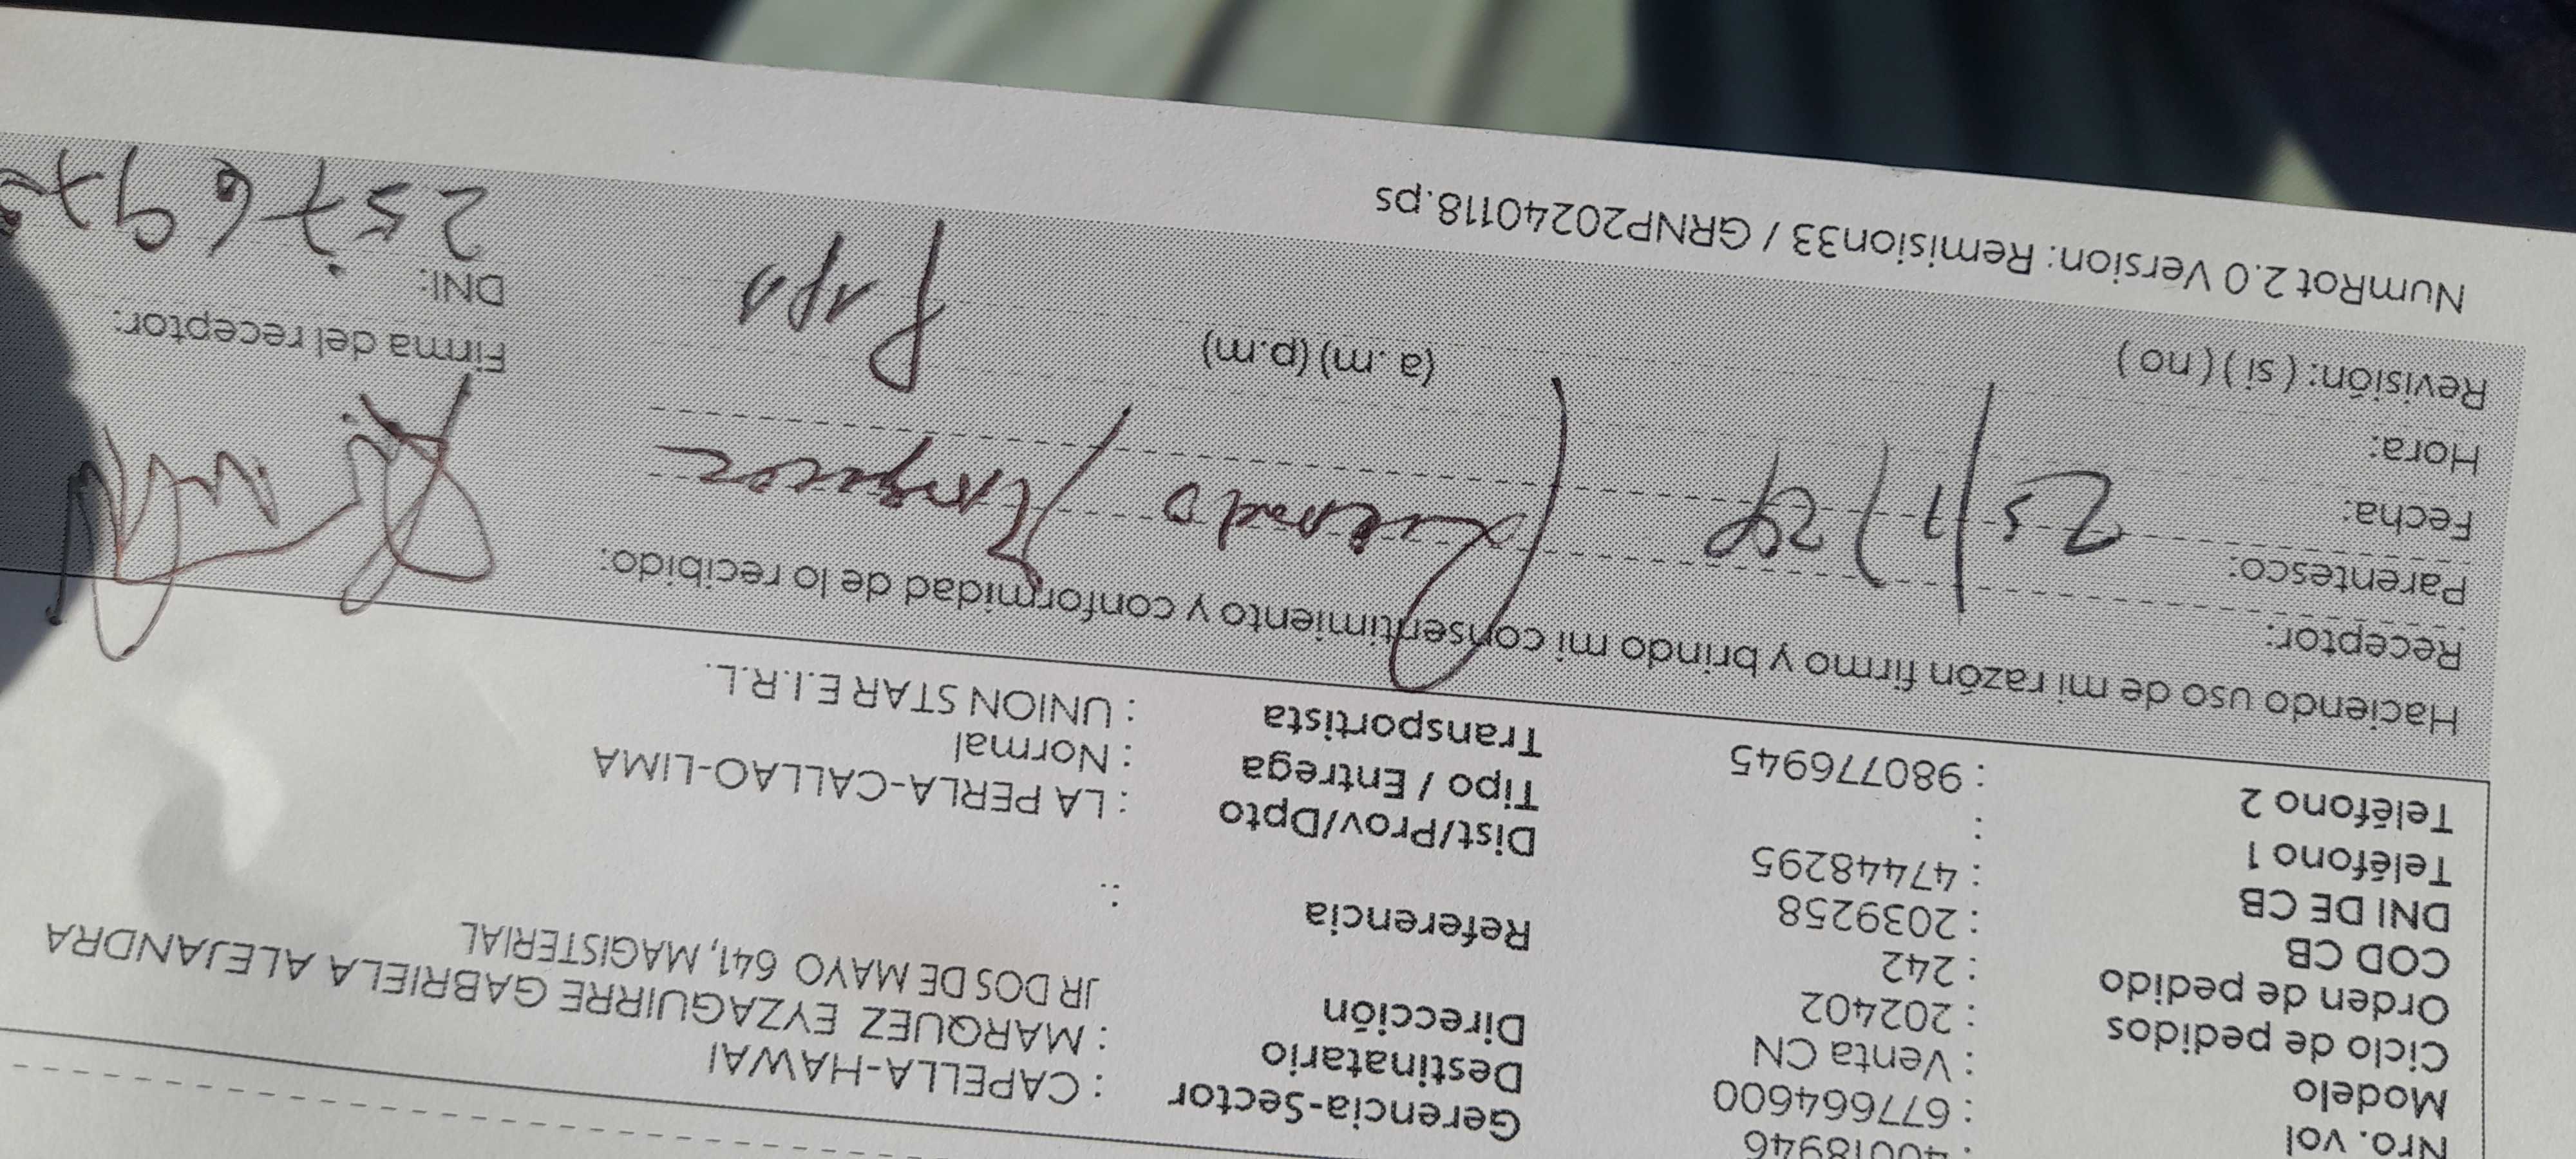 : 40018946
Nro. vol : 677664600 Gerencia-Sector : CAPELLA-HAWAI
Modelo : Venta CN Destinatario : MARQUEZ EYZAGUIRRE GABRIELA ALEJANDRA
Ciclo de pedidos : 202402 Dirección JR DOS DE MAYO 641, MAGISTERIAL
Orden de pedido : 242
COD CB : 2039258 Referencia :
DNI DE CB : 47448295
Teléfono 1 : Dist/Prov/Dpto : LA PERLA-CALLAO-LIMA
Teléfono 2 : 980776945 Tipo / Entrega : Normal
Transportista : UNION STAR E.I.R.L.
Haciendo uso de mi razón firmo y brindo mi consentimiento y conformidad de lo recibido:
Receptor:
Parentesco:
Fecha: 25/1/24
Hora:
Revisión: ( si ) ( no ) (a .m) (p.m) Papa
Firma del receptor:
DNI:
257697
NumRot 2.0 Version: Remision33 / GRNP20240118.ps